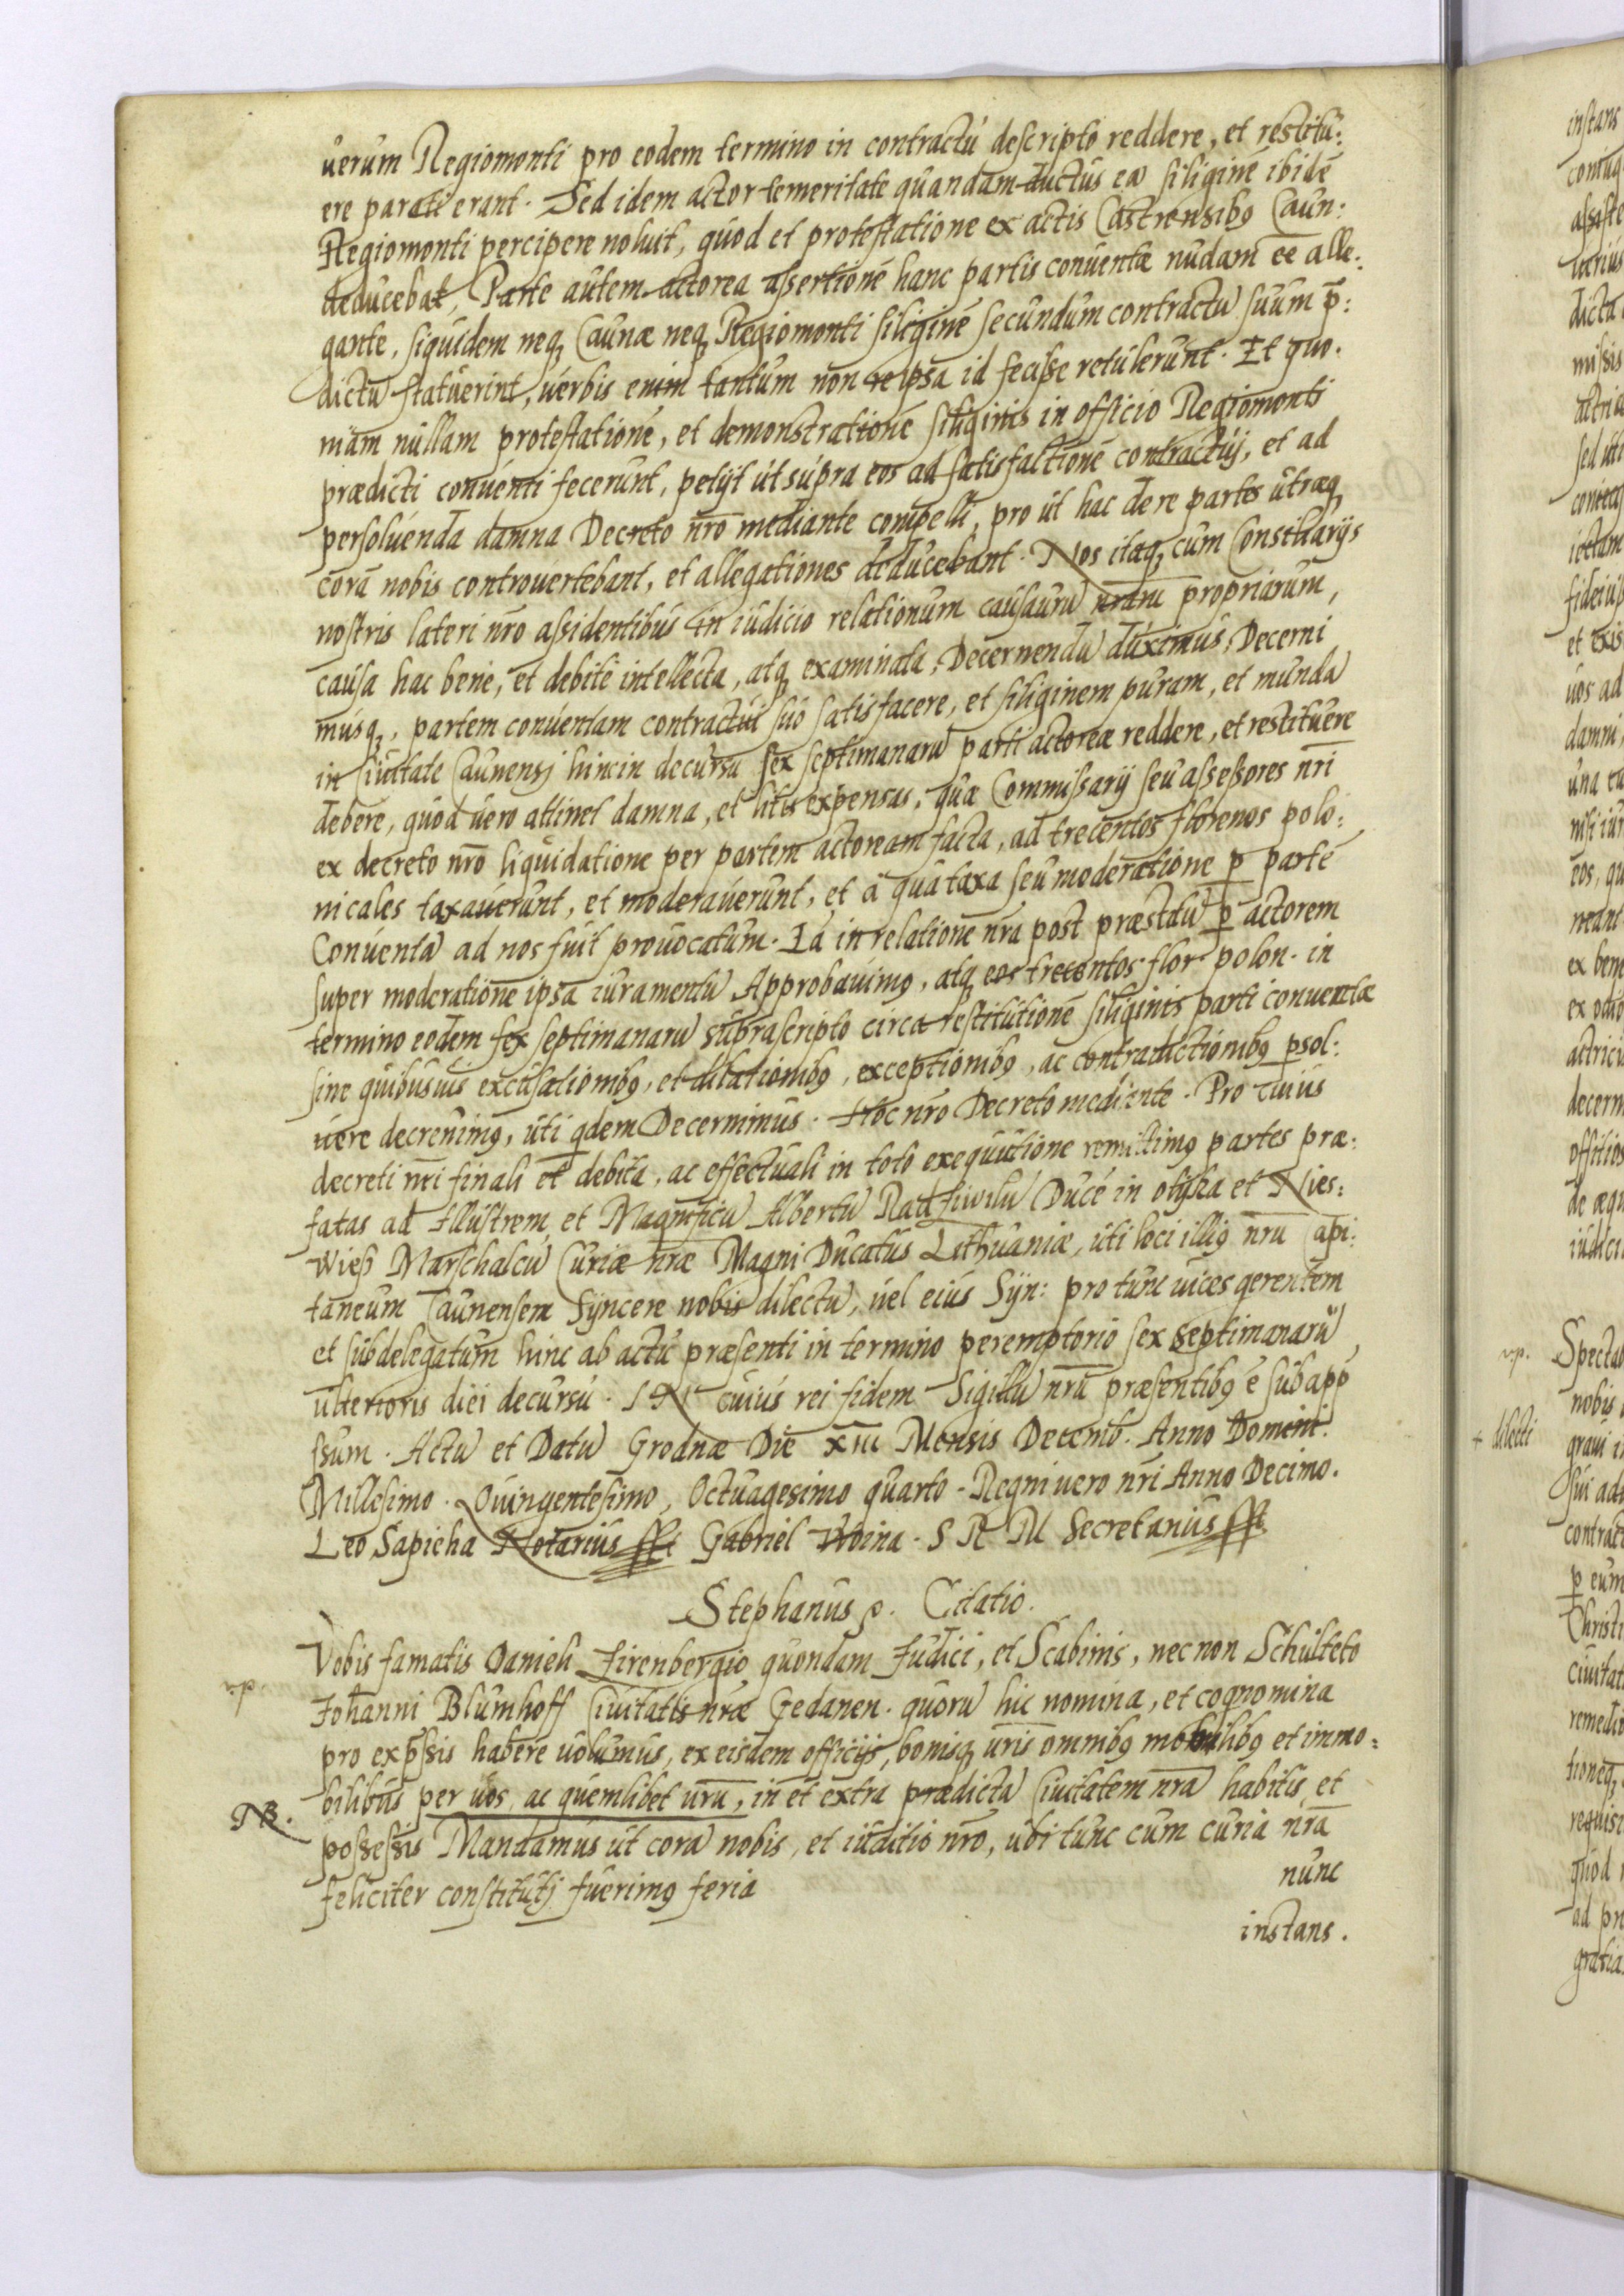 uerum Regiomonti pro eodem termino in contractu descripto reddere, et restitu:
ere parati erant. Sed idem actor temeritate quandam ductus ea siliginē ibidē
Regiomonti percipere noluit, quod et protestatione ex actis Castrensibꝯ Caun:
deducebat, Parte autem actorea assertionē hanc partis conuentæ nudam ēē alle:
gante, siquidem neqꝫ Caunæ neqꝫ Regiomonti siliginē secundum contractū suum p̄:
dictū statuerint, uerbis enim tantum non re ipsa id fecisse retulerunt. Et quo.
niam nullam protestationē, et demonstrationē siliginis in officio Regiomonti
prædicti conuenti fecerunt, petijt ut supra eos ad satisfactionē contractuj, et ad
persoluenda damna Decreto nr̄o mediante compelli, pro ut hac de re partes utræqꝫ
corā nobis controuertebant, et allegationes deducebant. Nos itaqꝫ cum Consiliarijs
nostris lateri nr̄o assidentibus in iudicio relationum causarū nrarū propriarum,
causa hac bene, et debite intellecta, atqꝫ examinata, Decernendū duximus, Decerni
musqꝫ, partem conuentam contractui suo satisfacere, et siliginem puram, et mundā
in Ciuitate Caunensj hinc in decursu sex septimanarū parti actoreæ reddere, et restituere
debere, quod uero attinet damna, et litis expensas, quæ Commissarij seu assessores nr̄i
ex decreto nr̄o liquidatione per partem actoream facta, ad trecentos florenos polo:
nicales taxauerunt, et moderauerunt, et a qua taxa seu moderatione ꝑ partē
Conuentā ad nos fuit prouocatum. Ea in relatione nr̄a post præstitū ꝑ actorem
super moderatione ipsa iuramentū Approbauimꝯ, atqꝫ eos trecentos flor. polon. in
termino eodem sex septimanarū suprascripto circa restitutionē siliginis parti conuentæ
sine quibusuis excusationibꝯ, et dilationibꝯ, exceptionibꝯ, ac contradictionibꝯ ꝑsol:
uere decreuimꝯ, uti qdem Decernimus. Hoc nr̄o Decreto mediante. Pro cuius
decreti nr̄i finali et debita, ac effectuali in toto exequutione remittimꝯ partes præ:
fatas ad Illustrem et Magnificū Albertū Radziwilū Ducē in olijka et Nies:
wiesß Marschalcū Curiæ nræ Magni Ducatus Lithuaniæ, uti loci illiꝯ nrū Capi:
taneum Caunensem Syncere nobis dilectū, uel eius Syn: pro tunc uices gerentem
et subdelegatum hinc ab actu præsenti in termino peremptorio sex septimanarū
ulterioris diei decursu. IN cuius rei fidem Sigillū nrū præsentibꝯ ē subapp̄
ssum. Actū et Datū Grodnæ Die xiii Mensis Decemb. Anno Domini.
Millesimo. Quingentesimo, Octuagesimo quarto. Regni uero nr̄i Anno Decimo.
Leo Sapieha Notarius sst Gabriel Woina. S R M Secretarius sst
Stephanus ꝛ. Citatio.
Vobis famatis Danieli Zirenbergio quondam Judici, et Scabinis, nec non Schulteto
Johanni Blumhoff Ciuitatis nræ Gedanen. quorū hic nomina, et cognomina
pro exp̄ssis habere uolumus, ex eisdem officijs, bonisqꝫ uris omnibꝯ mobilibꝯ et immo:
bilibus per uos, ac quemlibet urū, in et extra prædictā Ciuitatem nrā habitis, et
NB.
possessis Mandamus ut corā nobis, et iuditio nr̄o, ubi tunc cum curia nrā
feliciter constitutj fuerimꝯ feria nunc
instans.